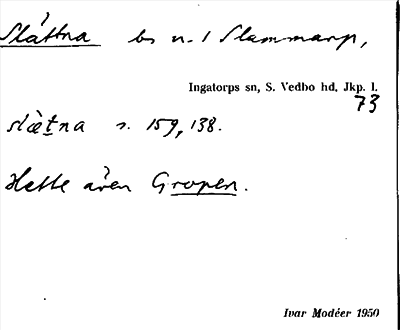 Slåttna bs n. 1 Slammarp,
Ingatorps sn, S. Vedbo hd, Jkp. l.
73
slætna s. 159, 138.
Hette även Gropen.
Ivar Modéer 1950